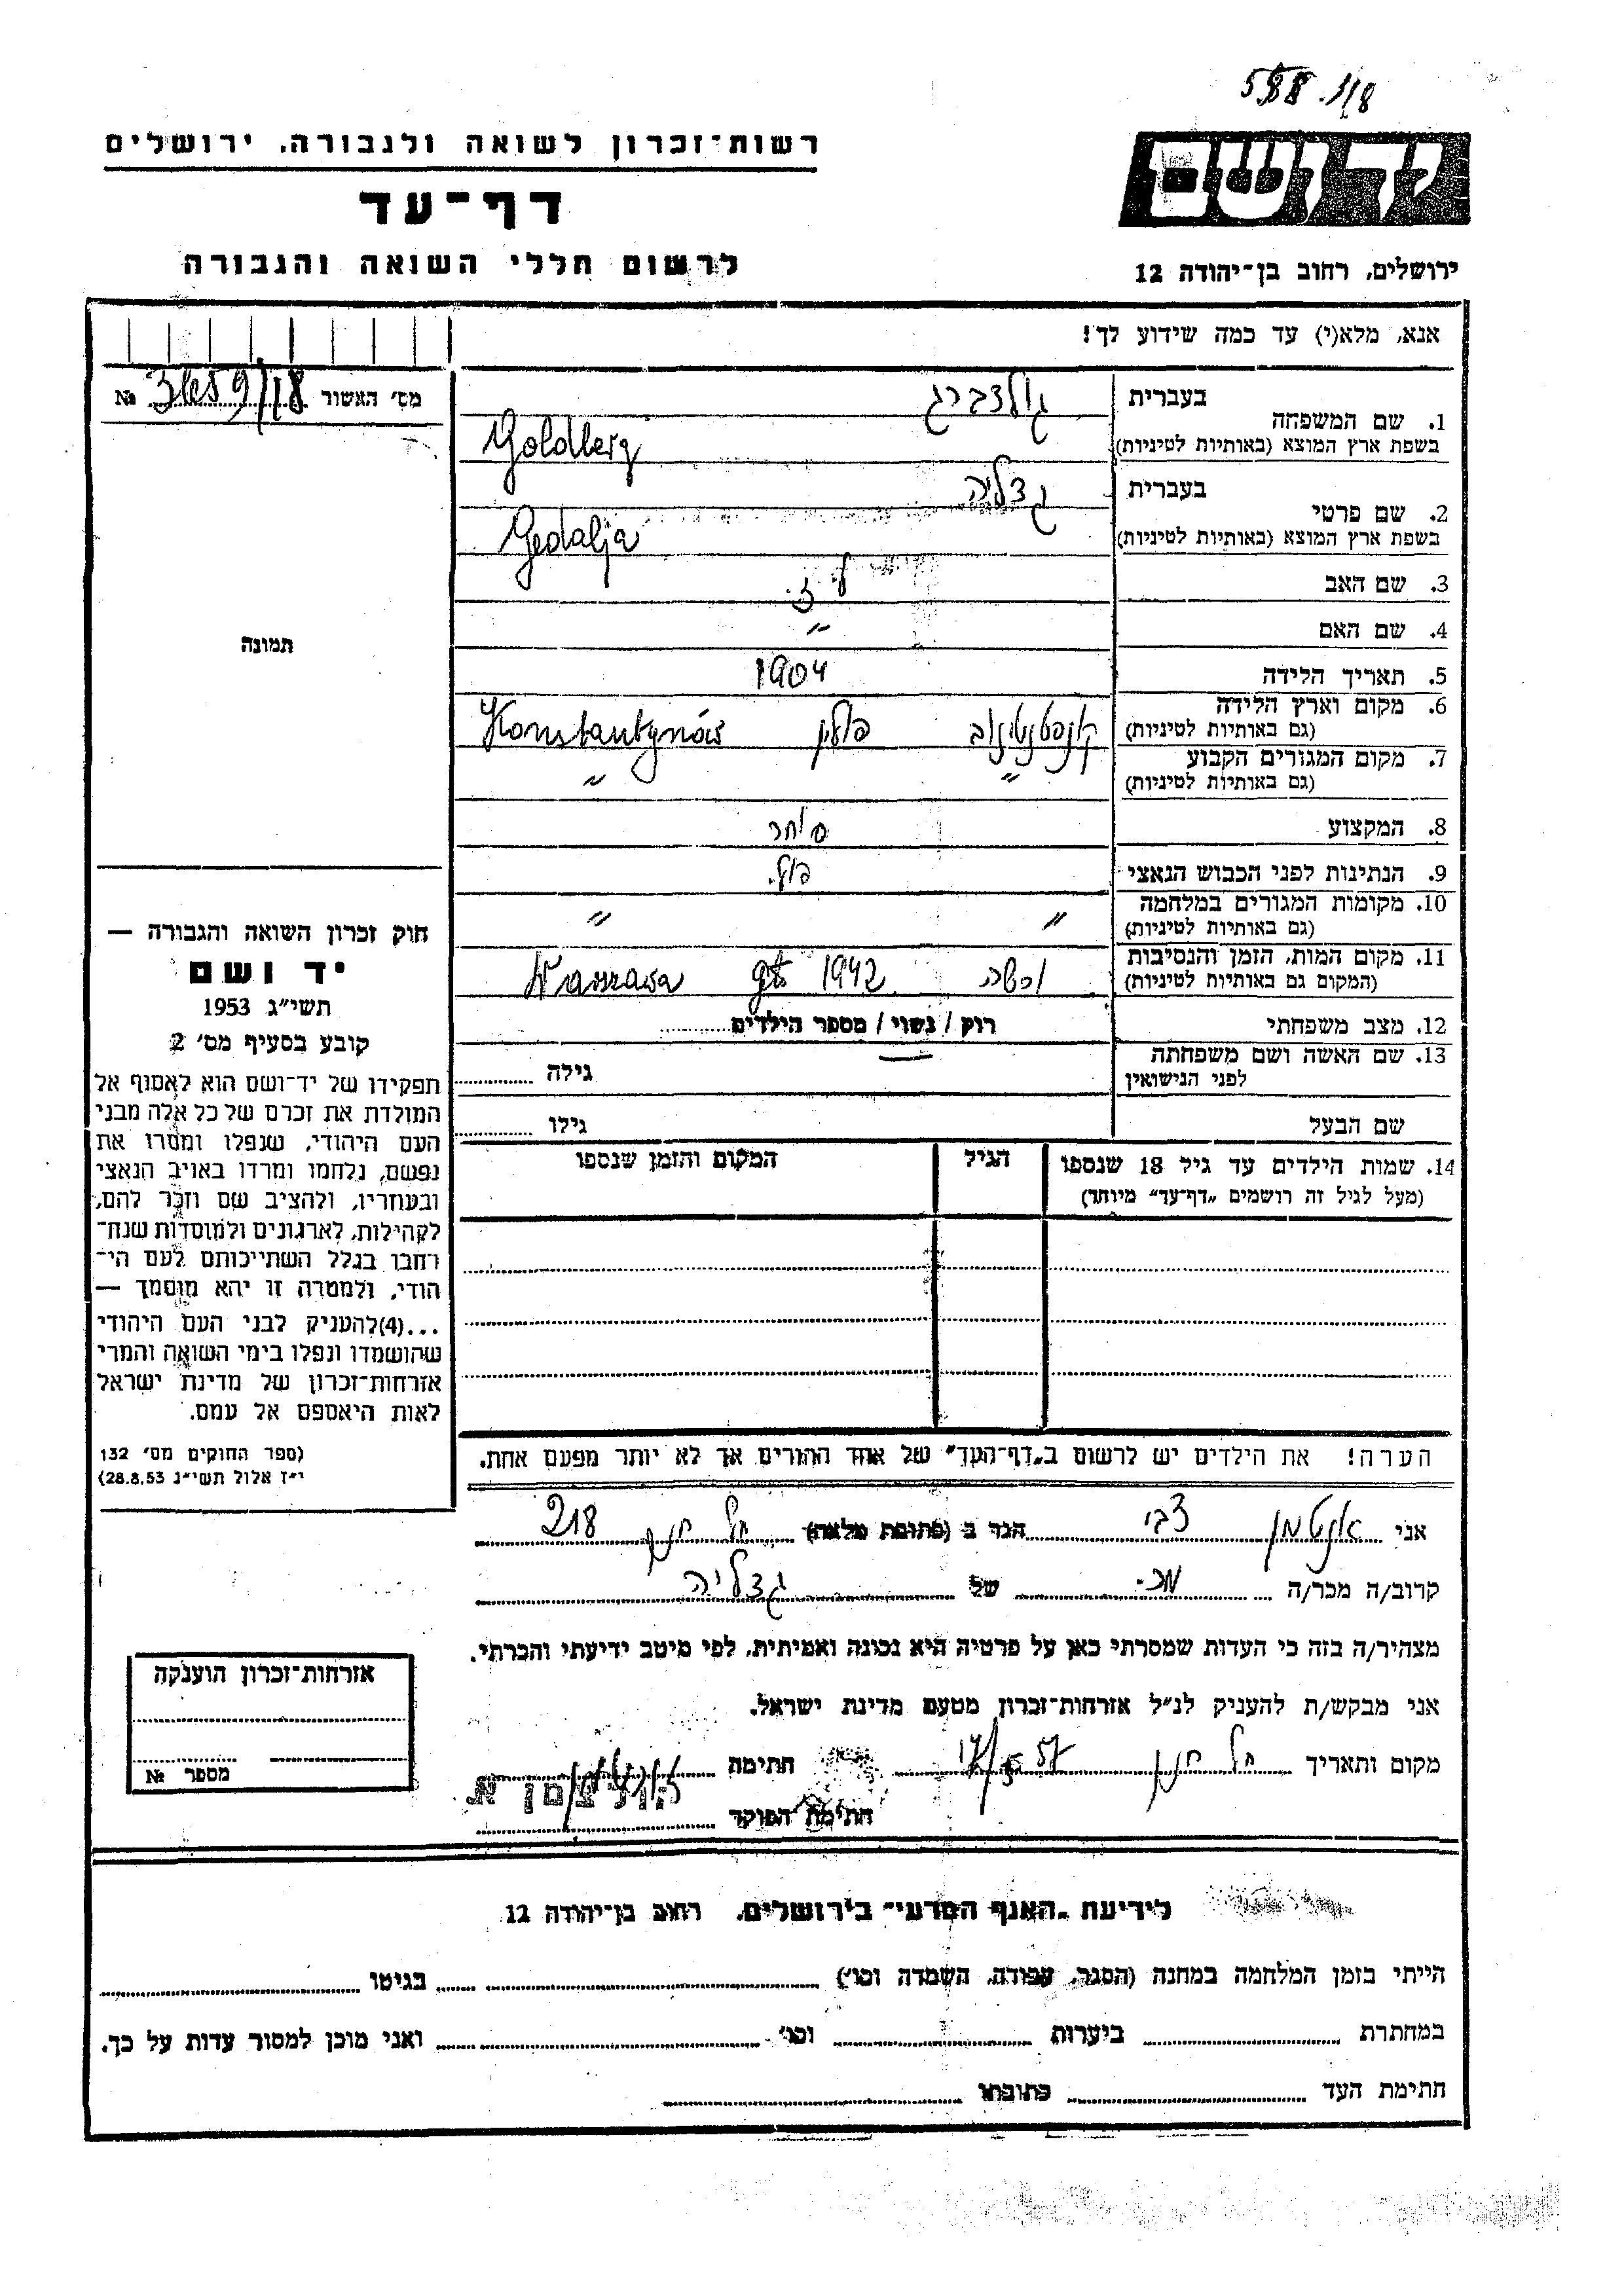 רשות־זכרון לשואה ולגבורה, ירושלים
דף־עד
לרשום חללי השואה והגבורה
יד ושם
ירושלים, רחוב בן־יהודה 12
אנא, מלא(י) עד כמה שידוע לך!
מס׳ האשור №
1. שם המשפחה
בעברית גולדברג
בשפת ארץ המוצא (באותיות לטיניות) Goldberg
2. שם פרטי
בעברית גדליה
בשפת ארץ המוצא (באותיות לטיניות) Gedalja
3. שם האב
4. שם האם "
5. תאריך הלידה 1904
6. מקום וארץ הלידה
(גם באותיות לטיניות) קונסטנטינוב פולין Konstantynów
7. מקום המגורים הקבוע
(גם באותיות לטיניות) " "
8. המקצוע סוחר
9. הנתינות לפני הכבוש הנאצי פול.
10. מקומות המגורים במלחמה
(גם באותיות לטיניות) " "
11. מקום המות, הזמן והנסיבות
(המקום גם באותיות לטיניות) ורשה 1942 Warszawa
12. מצב משפחתי רווק / נשוי / מספר הילדים
13. שם האשה ושם משפחתה
לפני הנישואין גילה
שם הבעל גילו
14. שמות הילדים עד גיל 18 שנספו הגיל המקום והזמן שנספו
(מעל לגיל זה רושמים „דף־עד״ מיוחד)
תמונה
חוק זכרון השואה והגבורה —
יד ושם
תשי״ג 1953
קובע בסעיף מס׳ 2
תפקידו של יד־ושם הוא לאסוף אל
המולדת את זכרם של כל אלה מבני
העם היהודי, שנפלו ומסרו את
נפשם, נלחמו ומרדו באויב הנאצי
ובעוזריו, ולהציב שם וזכר להם,
לקהילות, לארגונים ולמוסדות שנח־
רחבו בגלל השתייכותם לעם הי־
הודי, ולמטרה זו יהא מוסמך —
...(4)להעניק לבני העם היהודי
שהושמדו ונפלו בימי השואה והמרי
אזרחות־זכרון של מדינת ישראל
לאות היאספם אל עמם.
(ספר החוקים מס׳ 132
י״ז אלול תשי״ג 28.8.53)
הערה! את הילדים יש לרשום ב„דף־העד״ של אחד ההורים אך לא יותר מפעם אחת.
אני צבי הגר ב (כתובת מלאה) תל חנן 218
קרוב/ה מכר/ה מכ. של גדליה
מצהיר/ה בזה כי העדות שמסרתי כאן על פרטיה היא נכונה ואמיתית, לפי מיטב ידיעתי והכרתי.
אני מבקש/ת להעניק לנ״ל אזרחות־זכרון מטעם מדינת ישראל.
מקום ותאריך תל חנן חתימה
חתימת הפוקד
אזרחות־זכרון הוענקה
מספר №
לידיעת „האגף המדעי״ בירושלים, רחוב בן־יהודה 12
הייתי בזמן המלחמה במחנה (הסגר, עבודה, השמדה וכו׳) בגיטו
במחתרת ביערות וכו׳ ואני מוכן למסור עדות על כך.
חתימת העד כתובתו